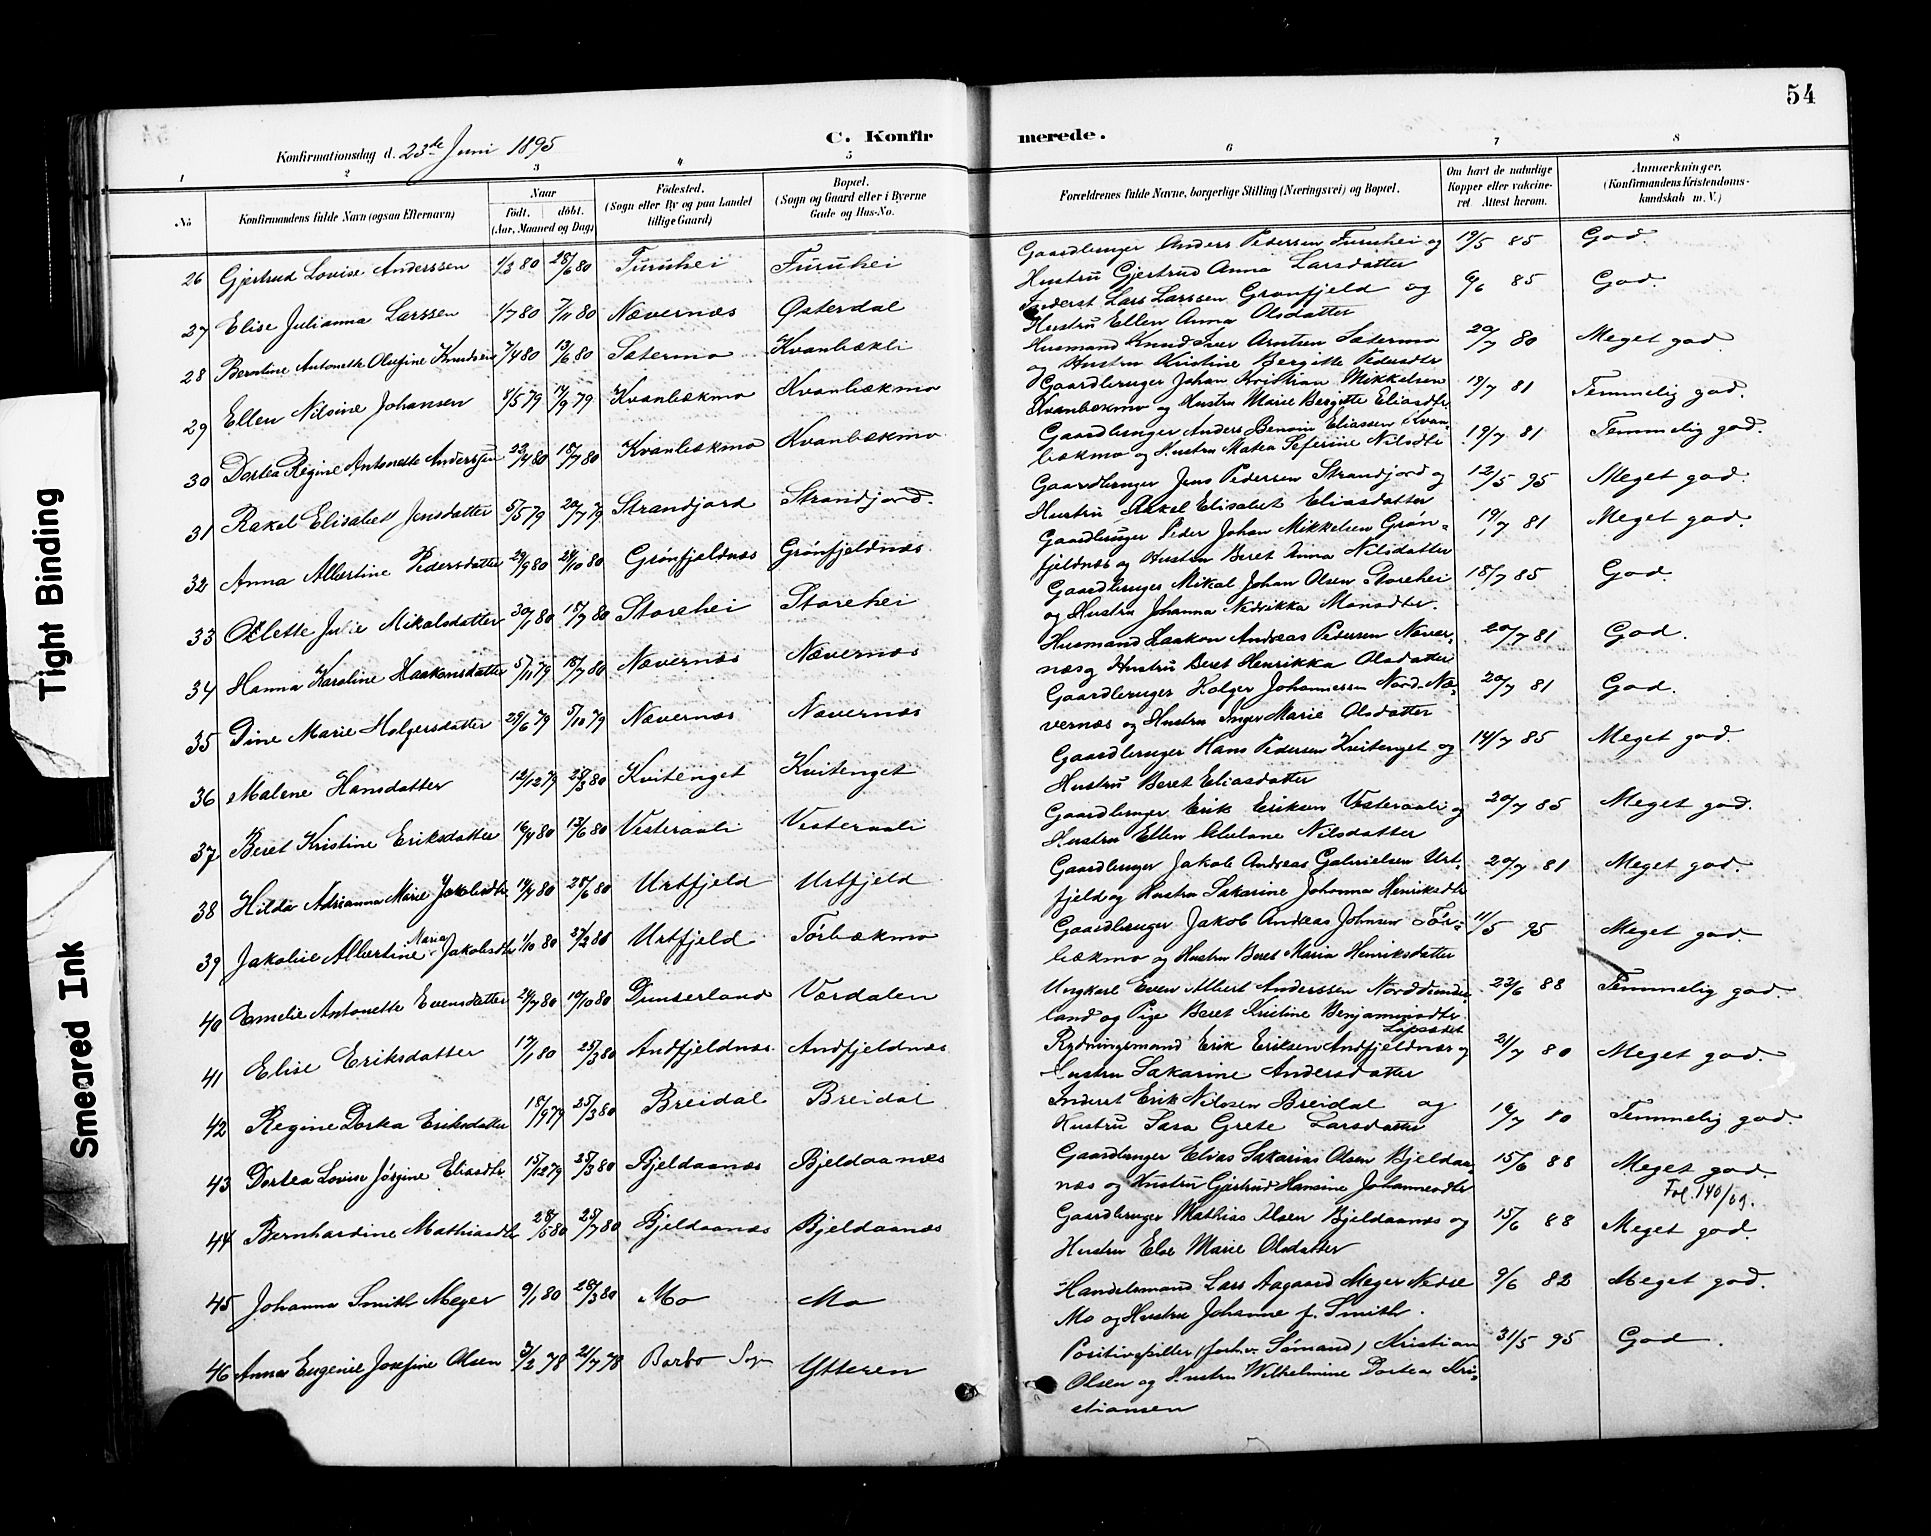 54
C. Konfirmerede.
Konfirmationsdag d. 23de Juni 1895
1 2 3 4 5 6 7 8
No
Konfirmandens fulde Navn (ogsaa Efternavn)
Naar
født. døbt.
(Aar, Maaned og Dag)
Fødested.
(Sogn eller By og paa Landet
tillige Gaard)
Bopæl.
(Sogn og Gaard eller i Byerne
Gade og Hus-No.
Forældrenes fulde Navne, borgerlige Stilling (Næringsvei) og Bopæl.
Om havt de naturlige
Kopper eller vakcine-
ret. Attest herom.
Anmærkninger.
(Konfirmandens Kristendoms-
kundskab m. V.)
26 Gjertrud Lovise Anderssen 1/3 80 28/6 80 Furuhei Furuhei
Gaardbruger Anders Pedersen Furuhei og 19/5 85 God.
Hustru Gjertrud Anna Larsdatter
27 Elise Julianna Larssen 1/7 80 7/11 80 Nævernæs Østerdal
Inderst Lars Larssen Grønfjeld og 6/6 85 God.
Hustru Ellen Anna Olsdatter
28 Berntine Antonette Olufine Knudsen 7/4 80 13/6 80 Sætermo Kvanbækli
Husmand Knud Iver Arntsen Sætermo 20/7 80 Meget god.
og Hustru Kristine Bergitte Pedersdtr
29 Ellen Nilsine Johansen 8/5 79 14/9 79 Kvanbækmo Kvanbækmo
Gaardbruger Johan Kristian Mikkelsen 19/7 81 Temmelig god.
Kvanbækmo og Hustru Marie Bergitte Eliasdtr.
30 Dortea Regine Antonette Anderssen 23/4 80 18/7 80 Kvanbækmo Kvanbækmo
Gaardbruger Anders Benoni Eliassen Kvan-
bækmo og Hustru Matea Seferine Nilsdtr 19/7 81 Temmelig god.
31 Rakel Elisabet Jensdatter 5/5 79 20/7 79 Strandjord Strandjord.
Gaardbruger Jens Pedersen Strandjord og 12/5 95 Meget god.
Hustru Rakel Elisabet Eliasdatter
32 Anna Albertine Pedersdatter 29/9 80 24/10 80 Grønfjeldnæs Grønfjeldnæs.
Gaardbruger Peder Johan Mikkelsen Grøn- 19/7 81 Meget god.
fjeldnæs og Hustru Beret Anna Nilsdatter
33 Ollette Julie Mikalsdatter 30/1 80 18/7 80 Storehei Storehei
Gaardbruger Mikal Johan Olsen Storehei 18/7 85 God.
og Hustru Johanna Nedrikka Monsdtr.
34 Hanna Karoline Haakonsdatter 5/11 79 18/7 80 Nævernæs Nævernæs
Husmand Haakon Andreas Pedersen Næver- 20/7 81 God.
næs og Hustru Beret Henrikka Olsdatter
35 Dine Marie Holgersdatter 29/6 79 5/10 79 Nævernæs Nævernæs
Gaardbruger Holger Johannessen Nord-Næ- 20/7 81 God.
vernæs og Hustru Inger Marie Olsdatter
36 Malene Hansdatter 12/12 79 28/3 80 Kvitenget Kvitenget
Gaardbruger Hans Pedersen Kvitenget og 14/7 85 Meget god.
Hustru Beret Eliasdatter
37 Beret Kristine Eriksdatter 16/4 80 13/6 80 Vesteraali Vesteraali
Gaardbruger Erik Eriksen Vesteraali og 20/7 85 Meget god.
Hustru Ellen Nilsdatter
38 Hilda Adrianna Marie Jakobsdtr 14/4 80 28/6 80 Urtfjeld Urtfjeld
Gaardbruger Jakob Andreas Gabrielsen Urt- 20/7 81 Meget god.
fjeld og Hustru Sakarine Johanna Henriksdtr
39 Jakobie Albertine Maria Jakobsdtr 1/10 80 Urtfjeld Tørbækmo
Gaardbruger Jakob Andreas Johnsen Tør- 11/5 95 Meget god.
bækmo og Hustru Beret Maria Henriksdatter
40 Emelie Antonette Evensdatter 24/7 80 10/10 80 Dunderland Værdalen
Ungkarl Even Albert Anderssen Norddunder- 23/6 88 Temmelig god.
land og Pige Beret Kristine Benjaminsdtr
41 Elise Eriksdatter 17/1 80 25/3 80 Andfjeldnæs. Andfjeldnæs
Rydningsmand Erik Eriksen Andfjeldnæs og 21/7 80 Meget god.
Hustru Sakarine Andersdatter
42 Regine Dorka Eriksdatter 18/9 79 25/3 80 Breidal Breidal
Inderst Erik Nilssen Breidal og 19/7 80 Temmelig god.
Hustru Sara Grete Larsdatter
43 Dortea Lovise Jørgine Eliasdtr 15/12 79 25/3 80 Bjeldaanæs Bjeldaanæs
Gaardbruger Elias Sakarias Olsen Bjeldaa- 15/6 88 Meget god.
næs og Hustru Gjertrud Hansine Johannesdtr
Fol. 140/09.
44 Bernhardine Mathiasdtr 28/5 80 25/7 80 Bjeldaanæs Bjeldaanæs
Gaardbruger Mathias Olsen Bjeldaanæs og 15/6 88 Meget god.
Hustru Else Marie Olsdatter
45 Johanna Smith Meyer 9/1 80 28/3 80 Mo Mo
Handelsmand Lars Aagaard Meyer Nedre 9/6 82 Meget god.
Mo og Hustru Johanne f. Smith.
46 Anna Eugenie Josefine Olsen 3/2 78 21/7 78 Barbo Sogn Ytteren
Positivspiller (forhv. Sømand) Kristian 31/5 95 God.
Olsen og Hustru Wilhelmine Dortea Kri-
stiansen
Tight Binding
Smeared Ink